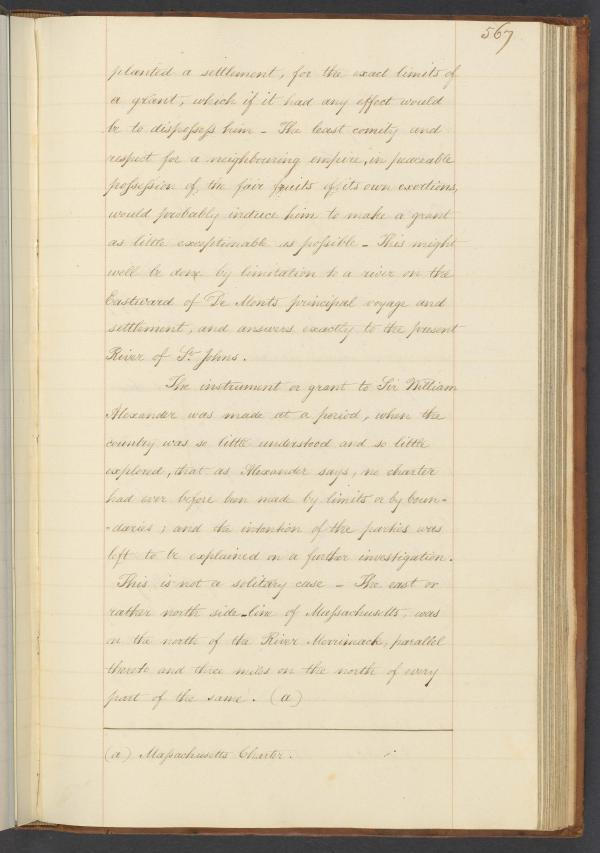 567
planted a settlement, for the exact limits of
a grant, which if it had any effect would
be to dispossess him - The least comity and
respect for a neighbouring empire, in peaceable
possession of the fair fruits of its own exertions,
would probably induce him to make a grant
as little exceptionable as possible - This might
well be done by limitation to a river on the
Eastward of De Monts principal voyage and
settlement, and answers exactly to the present
River of St. Johns.
The instrument or grant to Sir William
Alexander was made at a period, when the
country was so little understood and so little
explored, that as Alexander says, no charter
had ever before been made by limits or by boun-
-daries; and the intention of the parties was
left to be explained on a further investigation.
This is not a solitary case - The east or
rather north side-line of Massachusetts, was
on the north of the River Merrimack, parallel
thereto and three miles on the north of every
part of the same. (a)
(a) Massachusetts Charter.